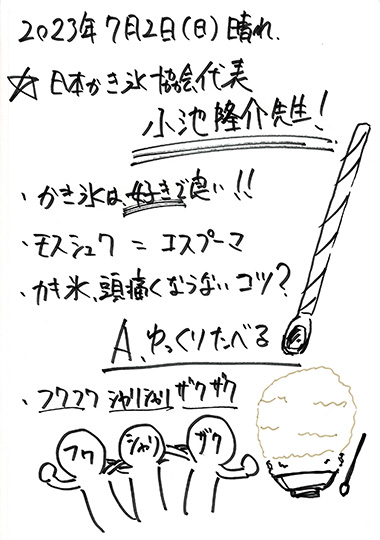 2023年7月2日(日)晴れ.
☆日本かき氷協会代表
小池隆介先生!
・かき氷は、好きで良い!!
・モスシュワ=エスプーマ
・かき氷、頭痛くならないコツ?
A、ゆっくりたべる
・フワフワ シャリシャリ ザクザク
フワ シャリ ザク